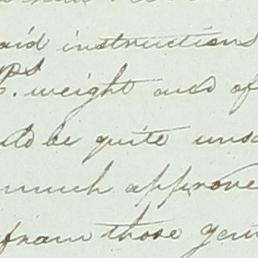 aid instructions
weight and of
be quite uns
much approve
from those gen